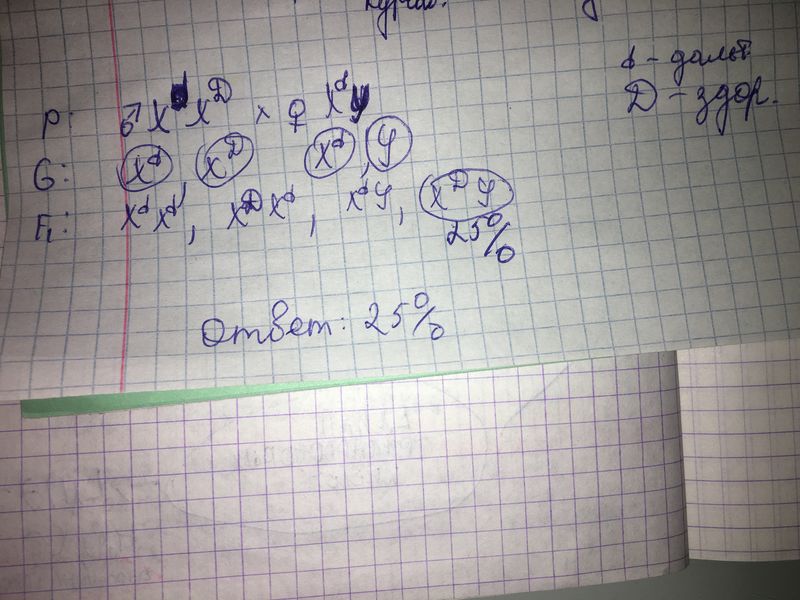 d - дальт
D - здор.
P: ♂ X^d X^D × ♀ X^d y
G: X^d, X^D X^d, y
F1: X^d X^d, X^D X^d, X^d y, X^D y
25%
Ответ: 25%